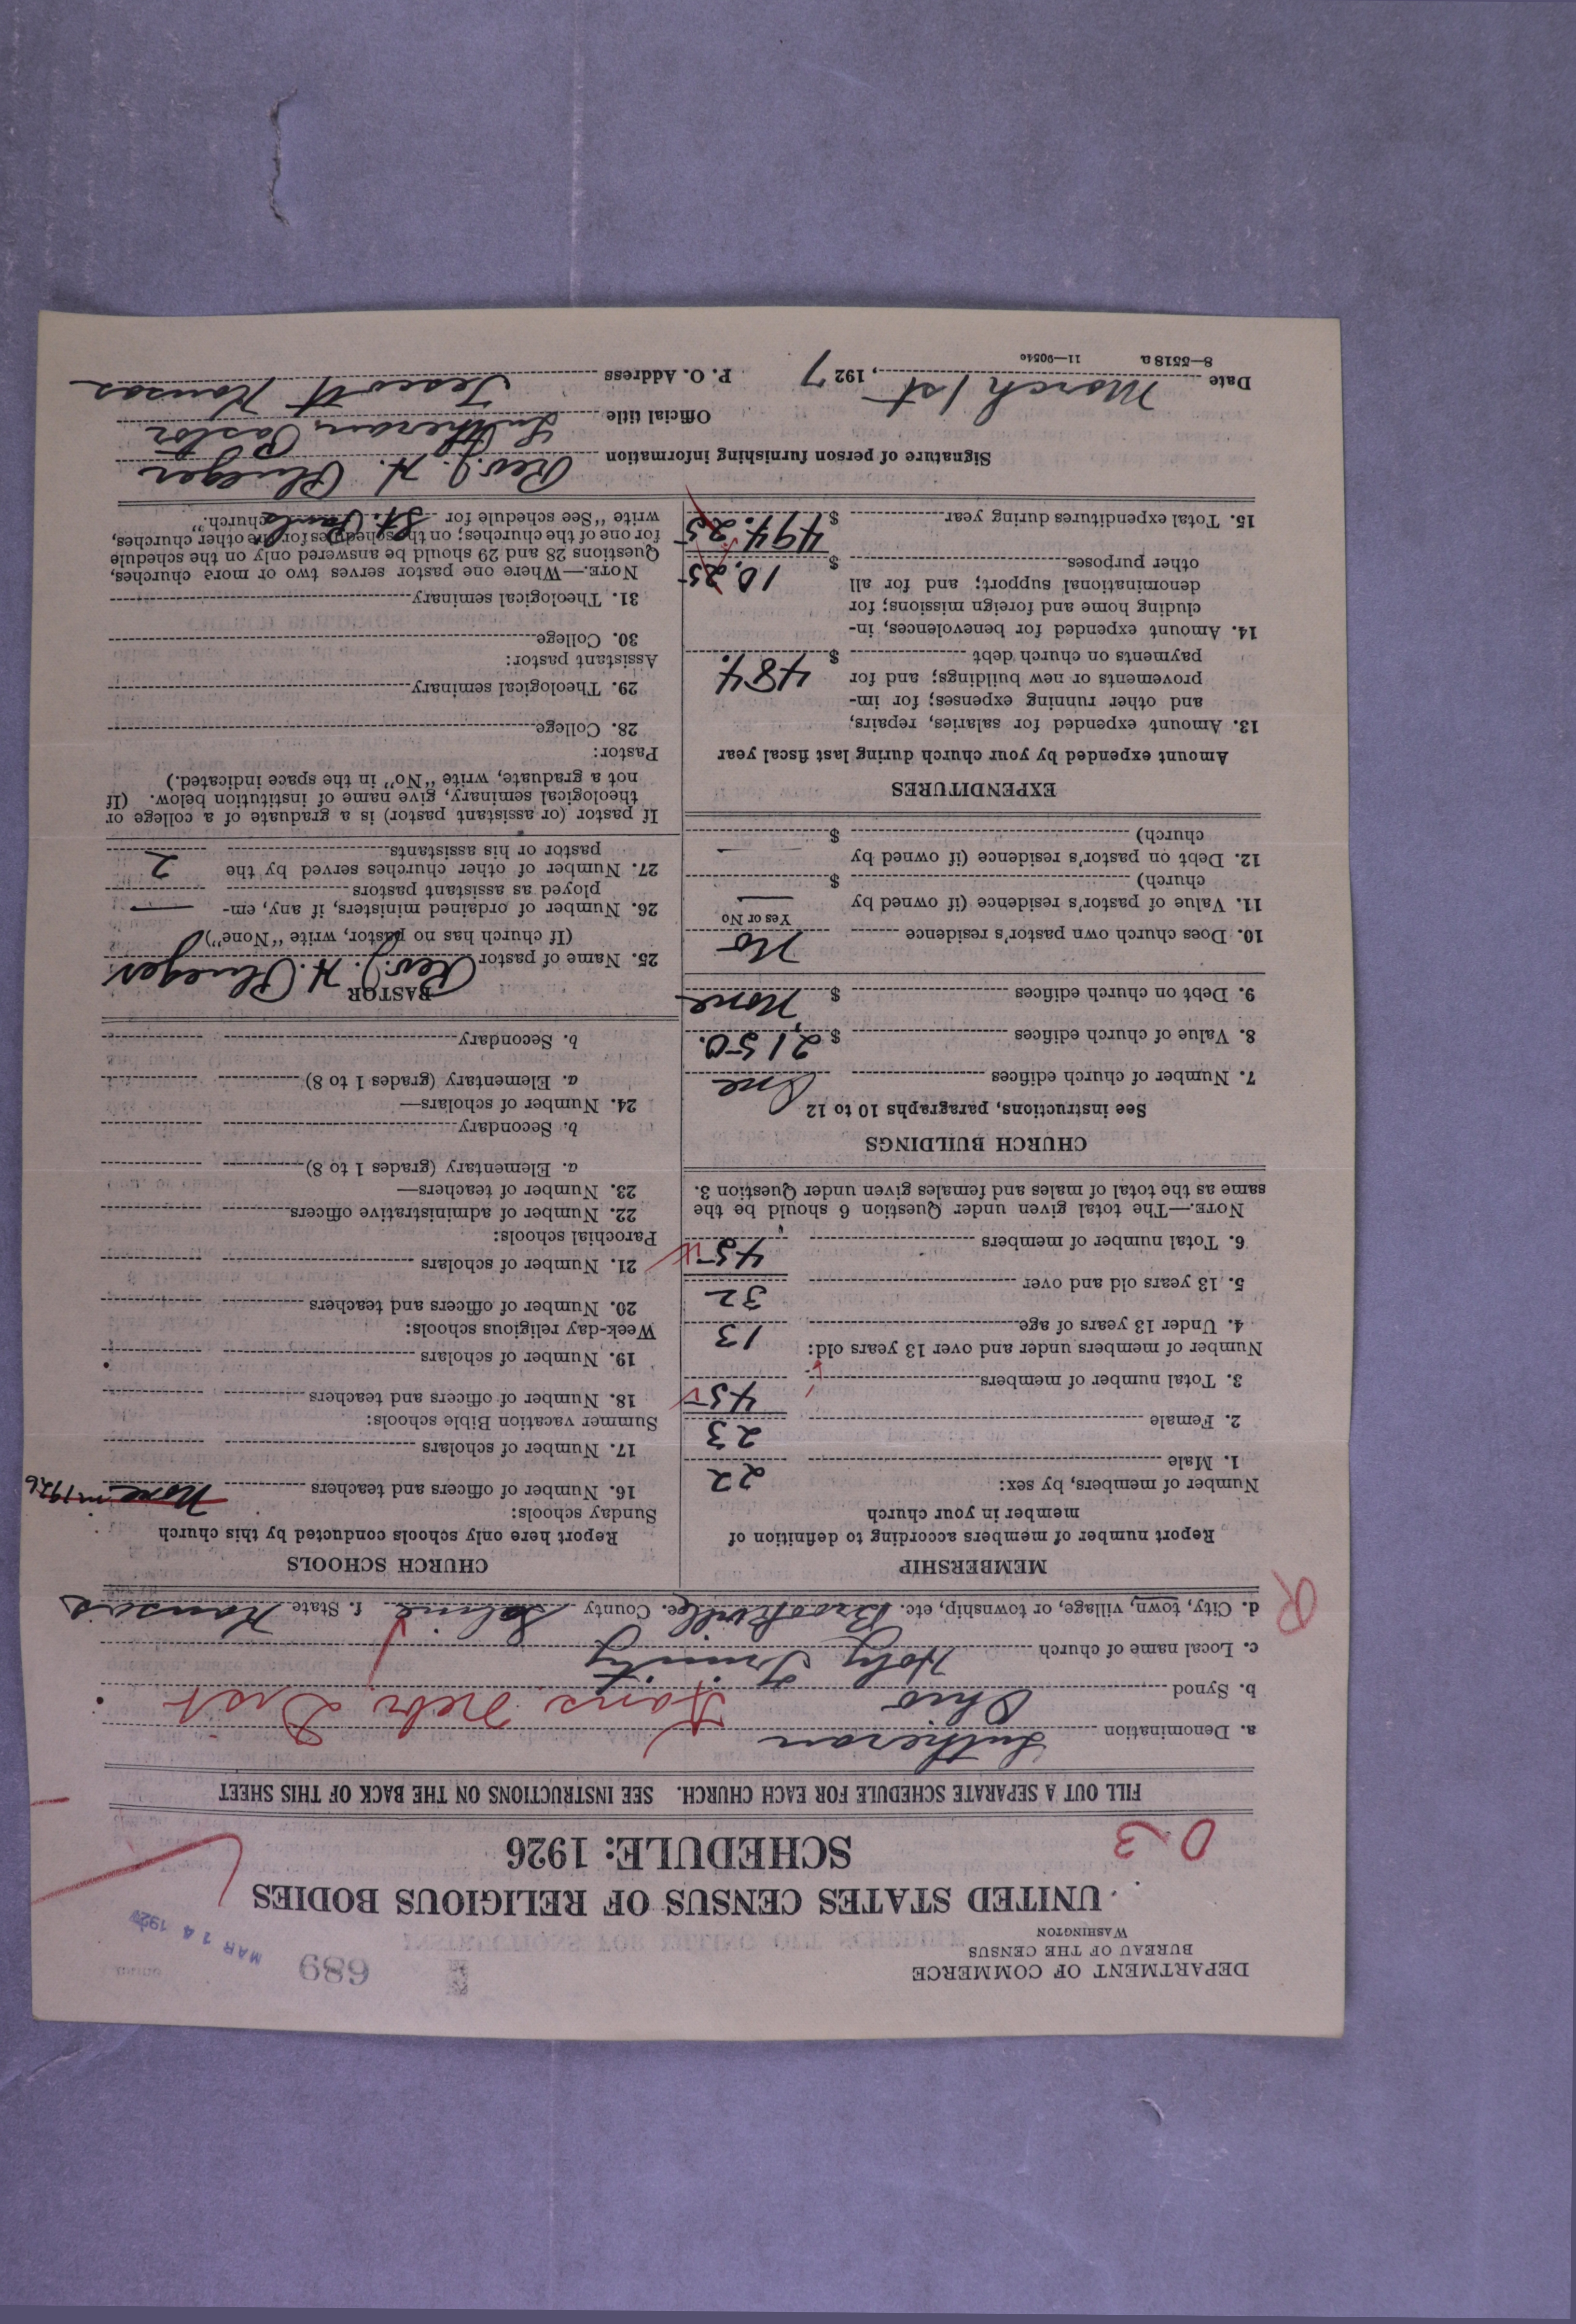 DEPARTMENT OF COMMERCE
BUREAU OF THE CENSUS
WASHINGTON
689
MAR 14 1927
UNITED STATES CENSUS OF RELIGIOUS BODIES
SCHEDULE: 1926
0-3
FILL OUT A SEPARATE SCHEDULE FOR EACH CHURCH. SEE INSTRUCTIONS ON THE BACK OF THIS SHEET
a. Denomination Lutheran
b. Synod Ohio Kans. Nebr Dist
c. Local name of church Holy Trinity
d. City, town, village, or township, etc. Brookville e. County Saline f. State Kansas
R
MEMBERSHIP
Report number of members according to definition of
member in your church
Number of members, by sex:
1. Male 22
2. Female 23
3. Total number of members 45
Number of members under and over 13 years old:
4. Under 13 years of age 13
5. 13 years old and over 32
6. Total number of members 45
NOTE.—The total given under Question 6 should be the
same as the total of males and females given under Question 3.
CHURCH BUILDINGS
See instructions, paragraphs 10 to 12
7. Number of church edifices One
8. Value of church edifices $ 2,150.
9. Debt on church edifices $ None
10. Does church own pastor's residence No
Yes or No
11. Value of pastor's residence (if owned by
church) $ —
12. Debt on pastor's residence (if owned by
church) $ —
EXPENDITURES
Amount expended by your church during last fiscal year
13. Amount expended for salaries, repairs,
and other running expenses; for im-
provements or new buildings; and for
payments on church debt $ 484.
14. Amount expended for benevolences, in-
cluding home and foreign missions; for
denominational support; and for all
other purposes $ 10.25
15. Total expenditures during year $ 494.25
CHURCH SCHOOLS
Report here only schools conducted by this church
Sunday schools:
16. Number of officers and teachers None in 1926
17. Number of scholars
Summer vacation Bible schools:
18. Number of officers and teachers
19. Number of scholars
Week-day religious schools:
20. Number of officers and teachers
21. Number of scholars
Parochial schools:
22. Number of administrative officers
23. Number of teachers—
a. Elementary (grades 1 to 8)
b. Secondary
24. Number of scholars—
a. Elementary (grades 1 to 8)
b. Secondary
PASTOR
25. Name of pastor Rev. J. H. Plueger
(If church has no pastor, write "None")
26. Number of ordained ministers, if any, em-
ployed as assistant pastors —
27. Number of other churches served by the
pastor or his assistants 2
If pastor (or assistant pastor) is a graduate of a college or
theological seminary, give name of institution below. (If
not a graduate, write "No" in the space indicated.)
Pastor:
28. College
29. Theological seminary
Assistant pastor:
30. College
31. Theological seminary
NOTE.—Where one pastor serves two or more churches,
Questions 28 and 29 should be answered only on the schedule
for one of the churches; on the schedules for the other churches,
write "See schedule for St. Pauls church."
Signature of person furnishing information Rev. J. H. Plueger
Official title Lutheran Pastor
Date March 1st, 1927 P. O. Address Tescott Kansas
8—5518 a 11—9054e